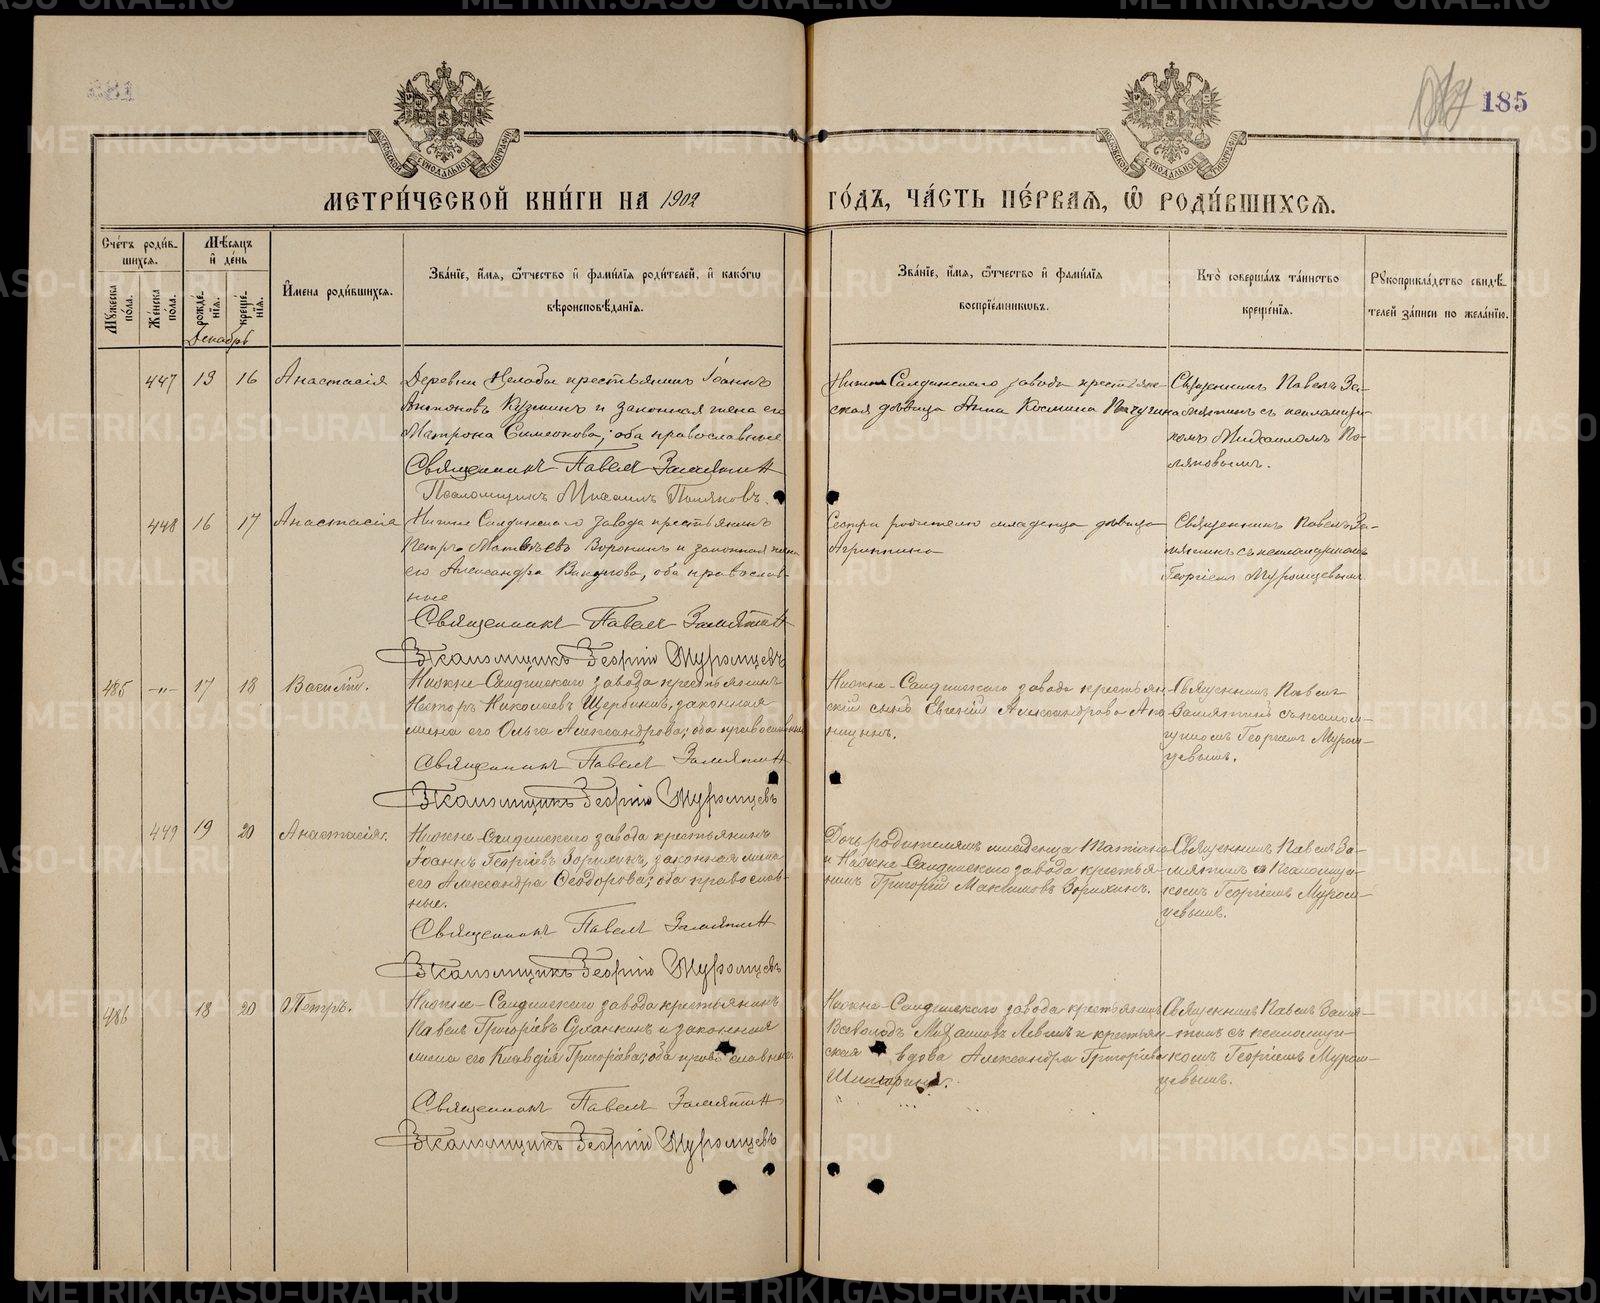 185
МОСКОВСКОЙ СѴНОДАЛЬНОЙ ТИПОГРАФІИ
МОСКОВСКОЙ СѴНОДАЛЬНОЙ ТИПОГРАФІИ
МЕТРИ́ЧЕСКОЙ КНИ́ГИ НА 1902
ГО́ДЪ, ЧА́СТЬ ПЕ́РВАѦ, Ѡ҆ РОДИ́ВШИХСѦ.
Сче́тъ роди́в-
шихсѧ.
Мꙋ́жеска по́ла.
Же́нска по́ла.
Мѣ́сѧцъ
и҆ де́нь
рожде́-
нїѧ.
креще́-
нїѧ.
Декабрь
И҆мена роди́вшихсѧ.
Зва́нїе, и҆́мѧ, ѻ҆́тчество и҆ фами́лїѧ роди́телей, и҆ како́гѡ
вѣроисповѣ́данїѧ.
Зва́нїе, и҆́мѧ, ѻ҆́тчество и҆ фами́лїѧ
воспрїе́мникѡвъ.
Кто̀ соверша́лъ та́инство
креще́нїѧ.
Рꙋкоприкла́дство свидѣ́-
телей за́писи по жела́нїю.
447 13 16 Анастасія
Деревни Нелобы крестьянинъ Іоаннъ
Антоновъ Кузминъ и законная жена его
Матрона Симеонова; оба православные
Священникъ Павелъ Замятин
Псаломщикъ Михаилъ Поляковъ.
Нижне Салдинского завода крестьян-
ская дѣвица Анна Космина Пичугина
Священникъ Павелъ За-
мятинъ съ псаломщи-
комъ Михаиломъ По-
ляковымъ.
448 16 17 Анастасія
Нижне Салдинского завода крестьянинъ
Петръ Матвѣевъ Воронинъ и законная жена
его Александра Вакулова, оба православ-
ные
Священникъ Павелъ Замятин
Псаломщикъ Георгій Муромцевъ
Сестра родителю младенца дѣвица
Агриппина
Священникъ Павелъ За-
мятинъ съ псаломщикомъ
Георгіемъ Муромцевымъ
485 -„- 17 18 Василій.
Нижне-Салдинскаго завода крестьянинъ
Несторъ Николаевъ Щербинъ, законная
жена его Ольга Александрова; оба православные
Священникъ Павелъ Замятин
Псаломщикъ Георгій Муромцевъ
Нижне-Салдинскаго завода крестьян-
скій сынъ Евгеній Александровъ
Священникъ Павелъ
Замятинъ съ псалом-
щикомъ Георгіемъ Мором-
цевымъ.
449 19 20 Анастасія.
Нижне-Салдинскаго завода крестьянинъ
Іоаннъ Георгіевъ Зорихинъ, законная жена
его Александра Ѳеодорова; оба православ-
ные.
Священникъ Павелъ Замятин
Псаломщикъ Георгій Муромцевъ
Дочь родителямъ младенца Татіана
и Нижне-Салдинскаго завода крестья-
нинъ Григорій Максимовъ Зорихинъ.
Священникъ Павелъ За-
мятинъ съ Псаломщи-
комъ Георгіемъ Муром-
цевымъ.
486 18 20 Петръ.
Нижне-Салдинскаго завода крестьянинъ
Павелъ Григоріевъ Суханкинъ и законная
жена его Клавдія Григоріева; оба православные.
Священникъ Павелъ Замятин
Псаломщикъ Георгій Муромцевъ
Нижне-Салдинскаго завода крестьянинъ
Всеволодъ Михаиловъ Левинъ и крестьян-
ская вдова Александра Григоріева
Священникъ Павелъ Замя-
тинъ съ псаломщи-
комъ Георгіемъ Муром-
цевымъ.
METRIKI.GASO-URAL.RU